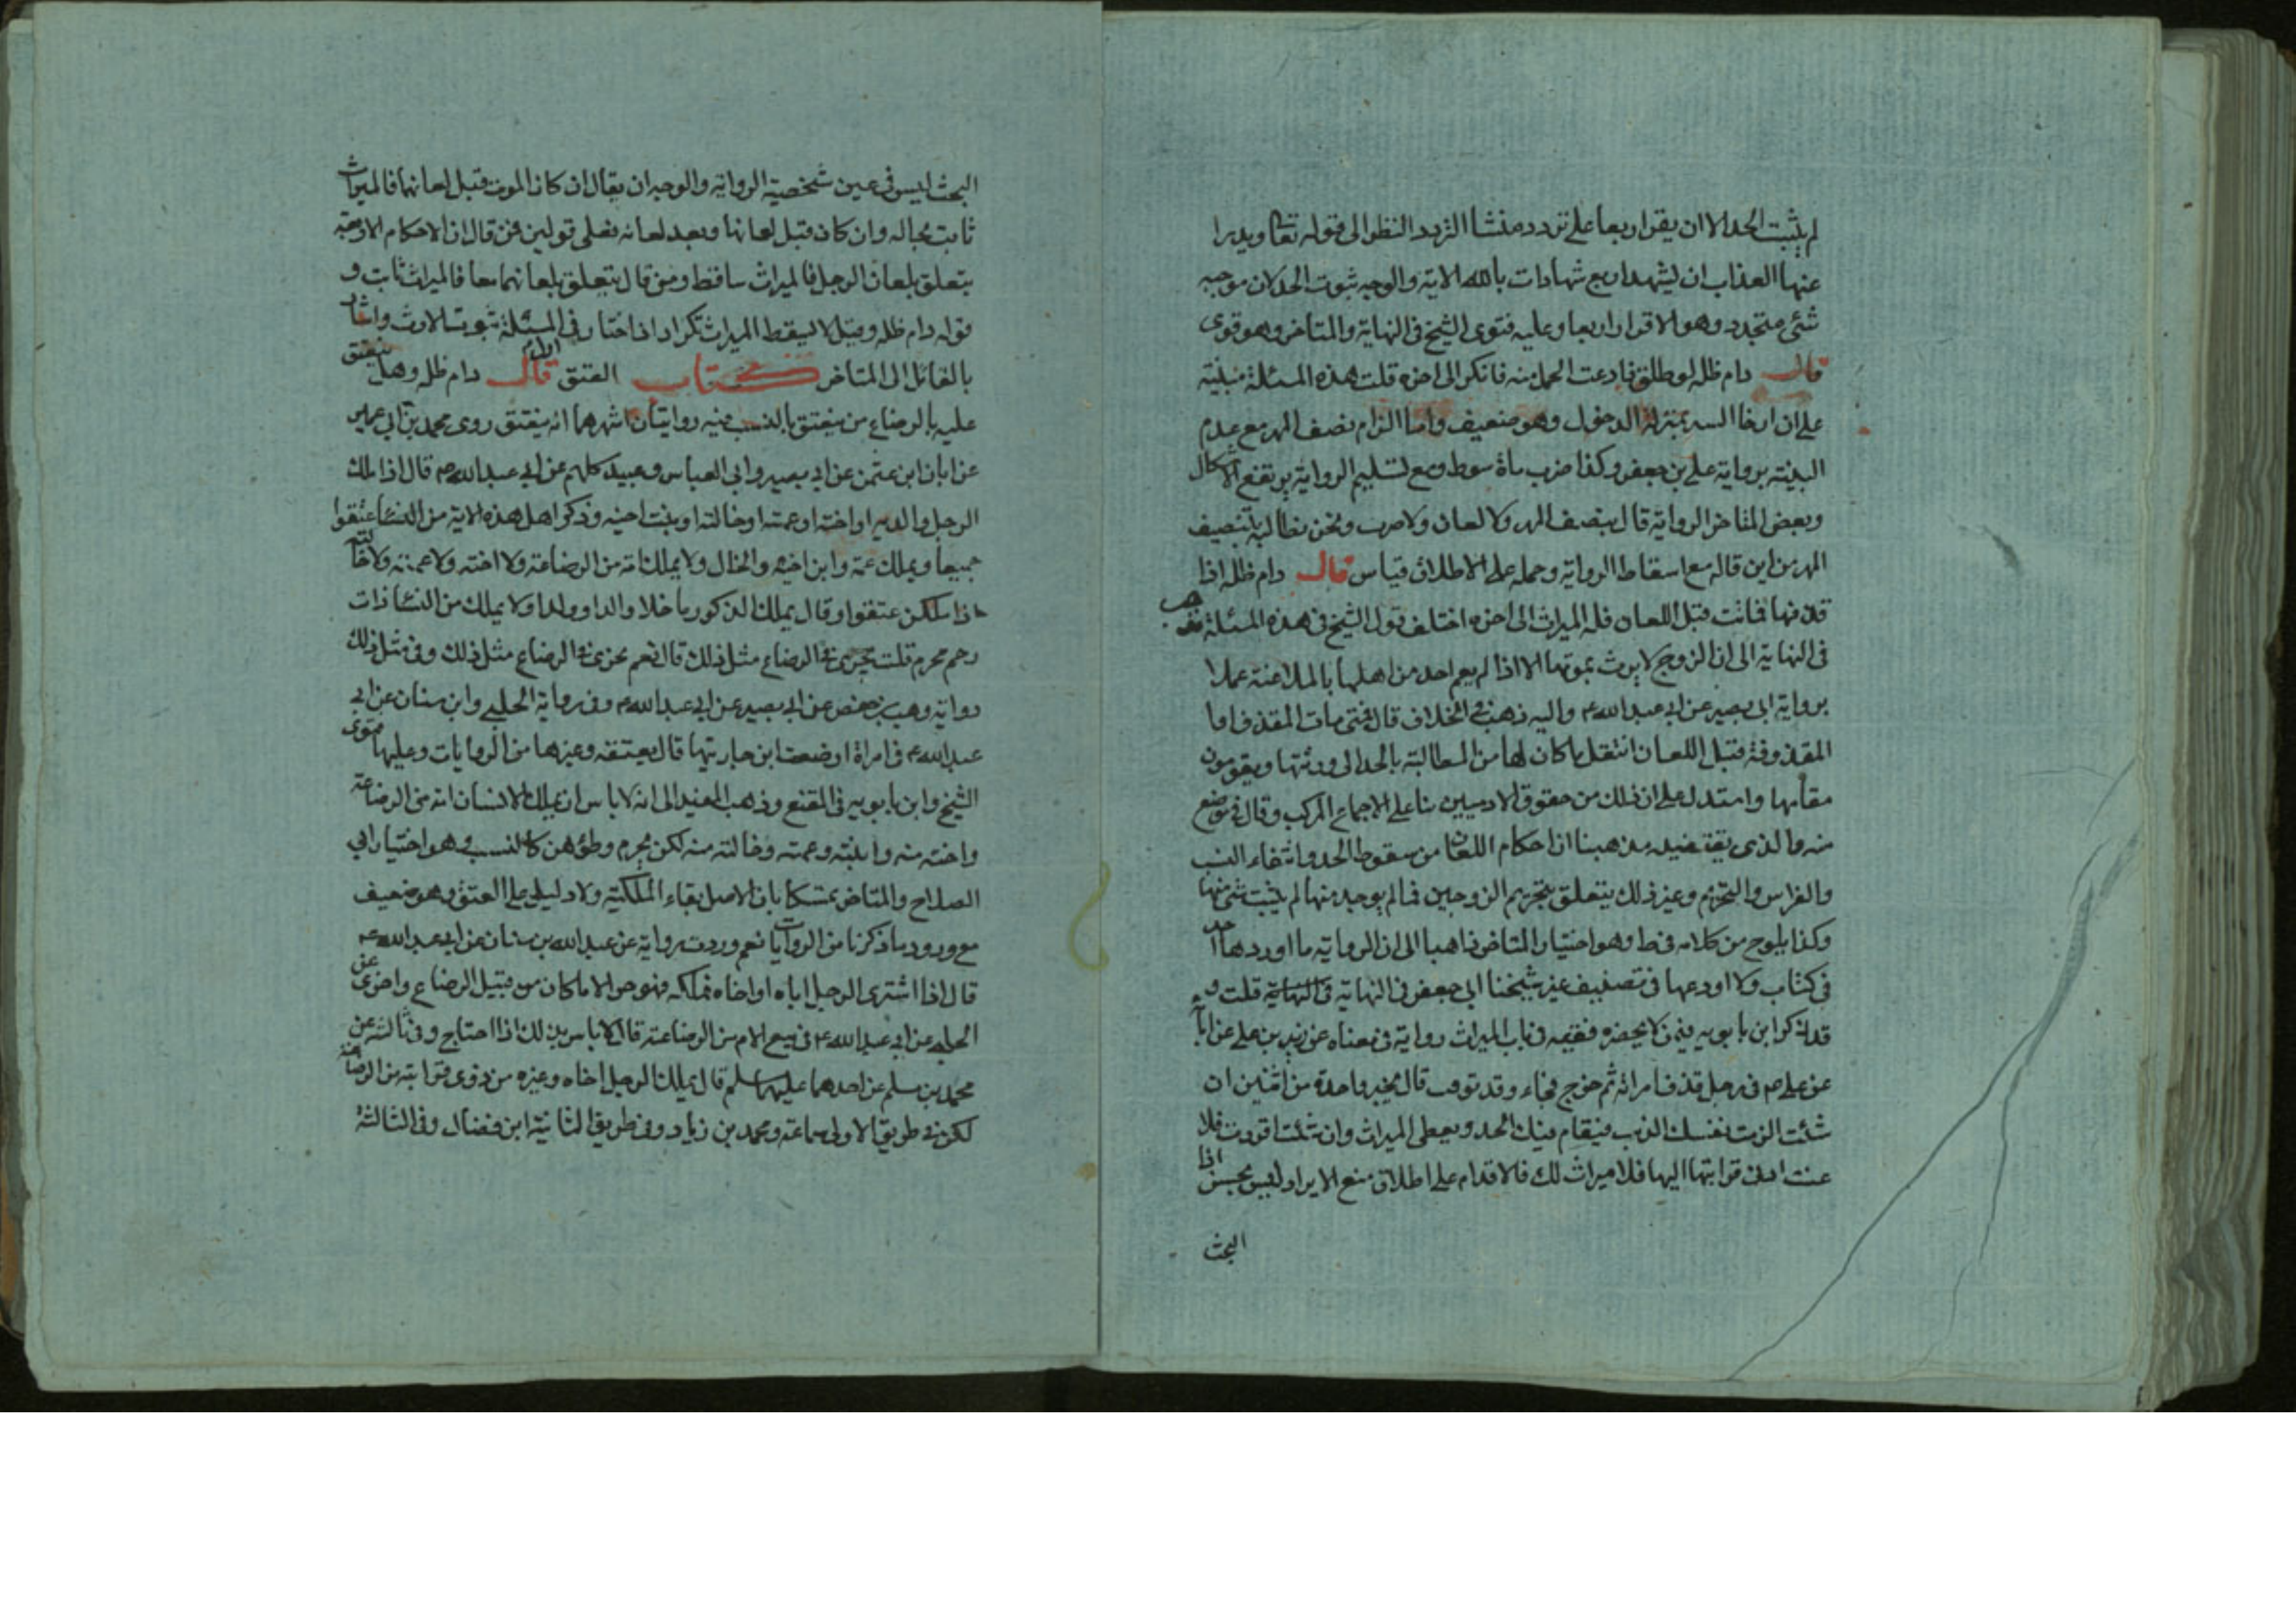 لم يثبت الحد الا ان يقر اربعا على تردد منشا التردد النظر الى قوله تعا ويدرا
عنها العذاب ان تشهد اربع شهادات بالله الاية والوجه ثبوت الحد لان موجبه
شئ متجدد وهو الاقرار اربعا وعليه فتوى الشيخ فى النهاية والمتاخر وهو قوى
قال دام ظله لو طلق فادعت الحمل منه فانكر الى اخره قلت هذه المسئلة مبنية
على ان ارخا الستر بمنزلة الدخول وهو ضعيف واما الزام نصف المهر مع عدم
البينة برواية على بن جعفر وكذا ضرب ماة سوط ومع تسليم الرواية يرتفع الاشكال
وبعض المتاخر الرواية قال بنصف المهر ولا لعان ولا ضرب ونحن نطالبه بتنصيف
المهر من اين قاله مع اسقاط الرواية وحمله على الاطلاق قياس قال دام ظله اذا
قذفها فماتت قبل اللعان فله الميراث الى اخره اختلف قول الشيخ فى هذه المسئلة فذهب
فى النهاية الى ان الزوج لا يرث بموتها الا اذا لم يقم احد من اهلها بالملاعنة عملا
برواية ابى بصير عن ابى عبد الله ع واليه ذهب فى الخلاف قال فمتى مات المقذف اما
المقذوفة قبل اللعان انتقل ما كان لها من المطالبة بالحد الى ورثتها ويقومون
مقامها واستدل على ان ذلك من حقوق الادميين بنا على الاجماع المركب وقال فى موضع
منه والذى يقتضيه مذهبنا ان احكام اللعان من سقوط الحد وانتفاء النسب
والفراش والتحريم وغير ذلك يتعلق بتحريم الزوجين فما لم يوجد منهما لم يثبت شئ منها
وكذا يلوح من كلامه فى ط وهو اختيار المتاخر ذاهبا الى ان الرواية ما اوردها احد
فى كتاب ولا اودعها فى تصنيف غير شيخنا ابى جعفر فى النهاية قلت و
قد ذكر ابن بابويه فيمن لا يحضره فقيه فى باب الميراث رواية فى معناه عن زيد بن على عن ابائه
عن على ع فى رجل قذف امراته ثم خرج فجاء وقد توفت قال يخير واحدة من اثنين ان
شئت الزمت نفسك الذنب فيقام فيك الحد ويعطى الميراث وان شئت اقررت فلا
عنت ادنى قرابتها اليها فلا ميراث لك فالاقدام على اطلاق منع الايراد ليس بحسن اذا
البحث
البحث ليس فى عين شخصية الرواية والوجه ان يقال ان كان الموت قبل لعانهما فالميراث
ثابت بحاله وان كان قبل لعانها وبعد لعانه فعلى قولين فمن قال ان الاحكام الاربعة
يتعلق بلعان الرجل فالميراث ساقط ومن قال يتعلق بلعانهما معا فالميراث ثابت و
قوله دام ظله وقيل لا يسقط الميراث تكرار اذا اختار فى المسئلة ثبوت الارث واشار
بالقائل الى المتاخر كتاب العتق قال دام ظله وهل ينعتق
عليه بالرضاع من ينعتق بالنسب فيه روايتان اشهرهما انه ينعتق روى محمد بن ابى عمير
عن ابان ابن عثمن عن ابى بصير وابى العباس وعبيد كلهم عن ابى عبد الله ع قال اذا ملك
الرجل والديه او اخته او عمته او خالته او بنت اخيه وذكر اهل هذه الاية من النساء عتقوا
جميعا ويملك عمه وابن اخيه والخال ولا يملك امه من الرضاعة ولا اخته ولا عمته ولا خالته
اذا ملكن عتقوا وقال يملك الذكور ما خلا والدا وولدا ولا يملك من النساء ذات
رحم محرم قلت يجرى فى الرضاع مثل ذلك قال نعم يجرى فى الرضاع مثل ذلك وفى مثل ذلك
رواية وهيب بن حفص عن ابى بصير عن ابى عبد الله ع وفى رواية الحلبى وابن سنان عن ابى
عبد الله ع فى امراة ارضعت ابن جاريتها قال يعتقه وغيرها من الروايات وعليها فتوى
الشيخ وابن بابويه فى المقنع وذهب المفيد الى انه لا باس ان يملك الانسان امه من الرضاعة
واخته منه وابنته وعمته وخالته منه لكن يحرم وطؤهن كالنسب وهو اختيار ابى
الصلاح والمتاخر تمسكا بان الاصل بقاء الملكية ولا دليل على العتق وهو ضعيف
مع ورود ما ذكرنا من الروايات نعم وردت برواية عن عبد الله بن سنان عن ابى عبد الله ع
قال اذا اشترى الرجل اباه او اخاه فملكه فهو حر الا ما كان من قبيل الرضاع واخرى عن
الحلبى عن ابى عبد الله ع فى بيع الام من الرضاعة قال لا باس بذلك اذا احتاج وفى ثالثة عن
محمد بن مسلم عن احدهما عليهما سلم قال يملك الرجل اخاه وغيره من ذوى قرابته من الرضاعة
لكن فى طريق الاولى سماعة ومحمد بن زياد وفى طريق الثانية ابن فضال وفى الثالثة